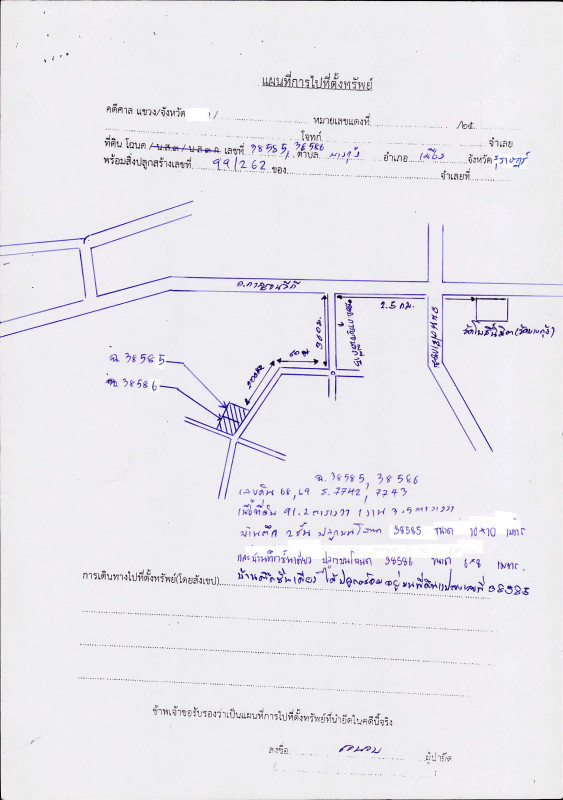 แผนที่การไปที่ตั้งทรัพย์
คดีศาล แขวง/จังหวัด / หมายเลขแดงที่ /๒๕
โจทก์
จำเลย
ที่ดิน โฉนด / น.ส.๓ / น.ส.๓ ก เลขที่ 38585, 38586 ตำบล บางกุ้ง อำเภอ เมือง จังหวัด สุราษฎร์
พร้อมสิ่งปลูกสร้างเลขที่ 99/262 ของ จำเลยที่
ถ.กาญจนวิถี
2.5 กม.
วัดโพธิ์นิมิต (วัดบางกุ้ง)
360 ม.
60 ม.
200 ม.
ฉ. 38585
ฉ. 38586
ฉ. 38585, 38586
เลขดิน 68, 69 ร. 7742, 7243
เนื้อที่ดิน 91.2 ตารางวา 1 งาน 7.5 ตารางวา
บ้านตึก 2 ชั้น ปลูกบนโฉนด 38585 ขนาด 10x10 เมตร
และบ้านตึกชั้นเดียว ปลูกบนโฉนด 38586 ขนาด 6x8 เมตร
การเดินทางไปที่ตั้งทรัพย์(โดยสังเขป) บ้านตึกชั้นเดียว ได้ปลูกสร้อม อยู่บนที่ดินแปลงเลขที่ 38585
ข้าพเจ้าขอรับรองว่าเป็นแผนที่การไปที่ตั้งทรัพย์ที่นำยึดในคดีนี้จริง
ลงชื่อ ผู้นำยึด